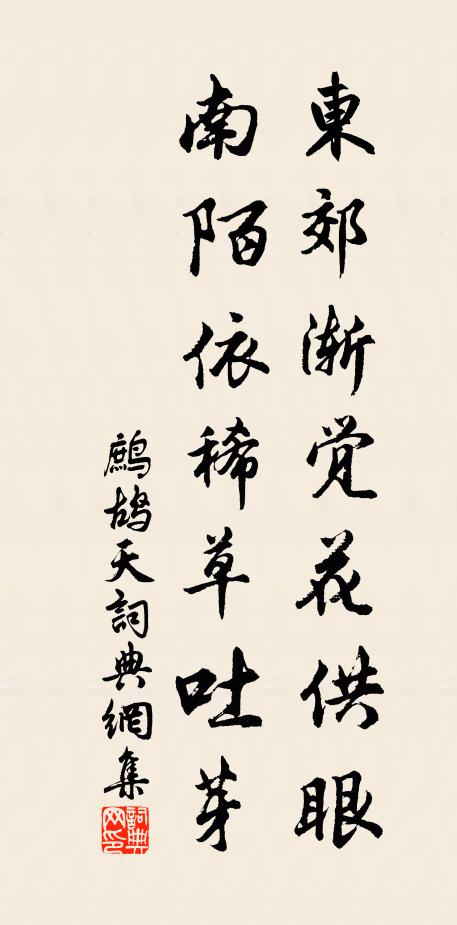 東郊漸觉花供眼
南陌依稀草吐芽
鷓鴣天詞典網集
詞典网印